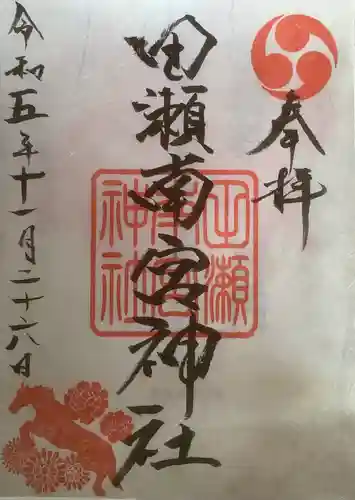 奉拝
田瀬南宮神社
田瀬南宮神社
令和五年十一月二十六日